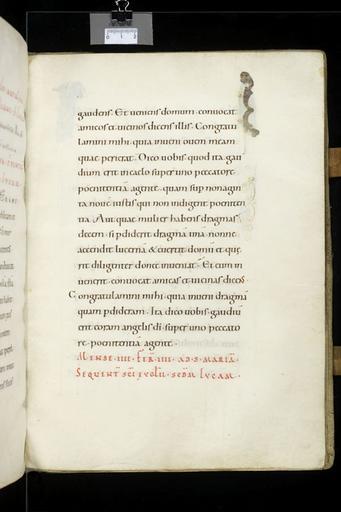 gaudens. Et veniens domum. convocat
amicos et vicinos dicens illis. Congratu
lamini mihi. quia inveni ovem meam
quae perierat. Dico vobis. quod ita gau
dium erit in caelo super uno peccatore.
poenitentiā agente. quam sup nonagin
ta nove iustis qui non indigent poeniten
tia. Aut quae mulier habens dragmas
decem. si pdiderit dragmā unā. nonne
accendit lucernā & everrit domū et quę
rit diligenter donec inveniat. Et cum in
venerit. convocat amicas et vicinas dicens
Congratulamini mihi. quia inveni dragmā
quam pdideram. Ita dico vobis. gaudiū
erit coram angelis dī. super uno peccato
re. poenitentiā agente.
MENSE. IIII. FER. IIII. AD. S. MARIĀ.
SEQUENT SCI EVGLII. SECDM LVCAM.